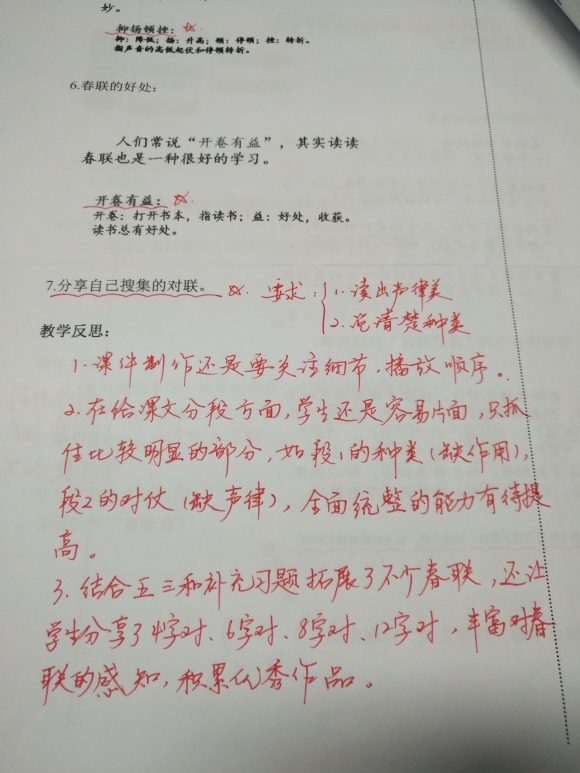 妙。
抑扬顿挫：☆
抑：降低；扬：升高；顿：停顿；挫：转折。
指声音的高低起伏和停顿转折。
6.春联的好处：
人们常说“开卷有益”，其实读读
春联也是一种很好的学习。
开卷有益：☆
开卷：打开书本，指读书；益：好处，收获。
读书总有好处。
7.分享自己搜集的对联。☆ 要求：1.读出声律美
2.说清楚种类
教学反思：
1.课件制作还是要关注细节，播放顺序。
2.在给课文分段方面，学生还是容易片面，只抓
住比较明显的部分，如段1的种类（缺作用），
段2的对仗（缺声律），全面统整的能力有待提
高。
3.结合五三和补充习题拓展了不少春联，还让
学生分享了4字对、6字对、8字对、12字对，丰富对春
联的感知，积累优秀作品。